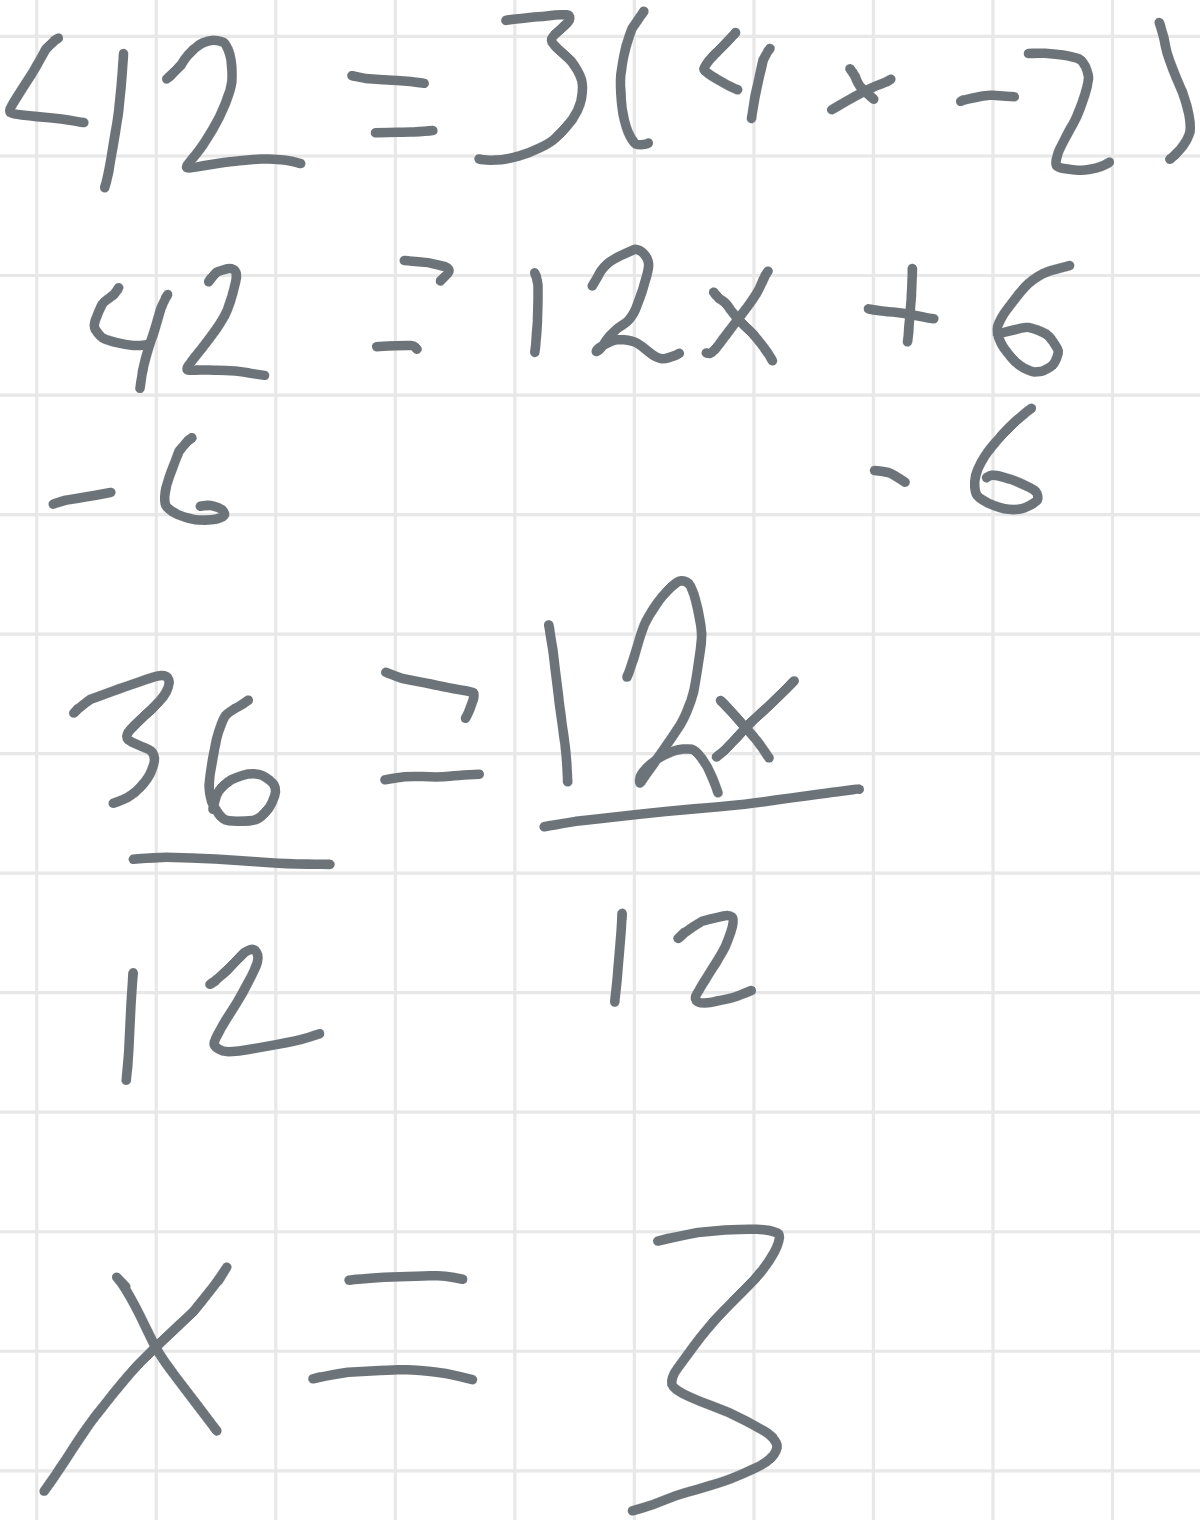 42 = 3(4x - 2)
42 = 12x + 6
- 6 - 6
36 = 12x
12 12
x = 3